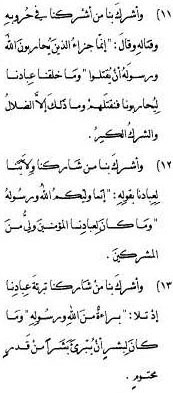 (١١) وأشرك بنا من أشركنا في حروبه
وقتاله وقال: "إنما جزاء الذين يحاربون الله
ورسوله أن يقتلوا" وما خلقنا عبادنا
ليحاربونا فنقتلهم وما ذلك إلا الضلال
والشرك الكبير.
(١٢) وأشرك بنا من شاركنا ولايتنا
لعبادنا بقوله: "إنما وليكم الله ورسوله"
وما كان لعبادنا المؤمنين ولي من
المشركين.
(١٣) وأشرك بنا من شاركنا تبرئة عبادنا
إذ تلا: "براءة من الله ورسوله" وما
كان لبشر أن يبرئ بشرا من قدر
محتوم.